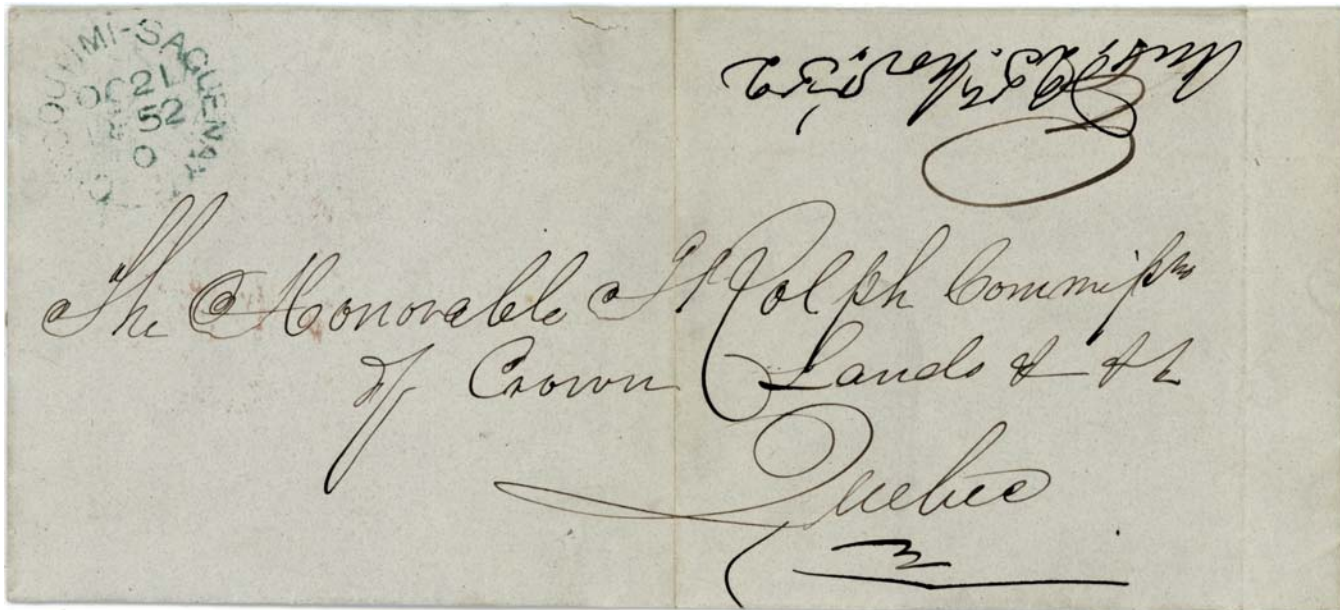 CHICOUTIMI-SAGUENAY
OC 21
52
0
The Honorable Rolph Commissr
of Crown Lands & &c
Quebec